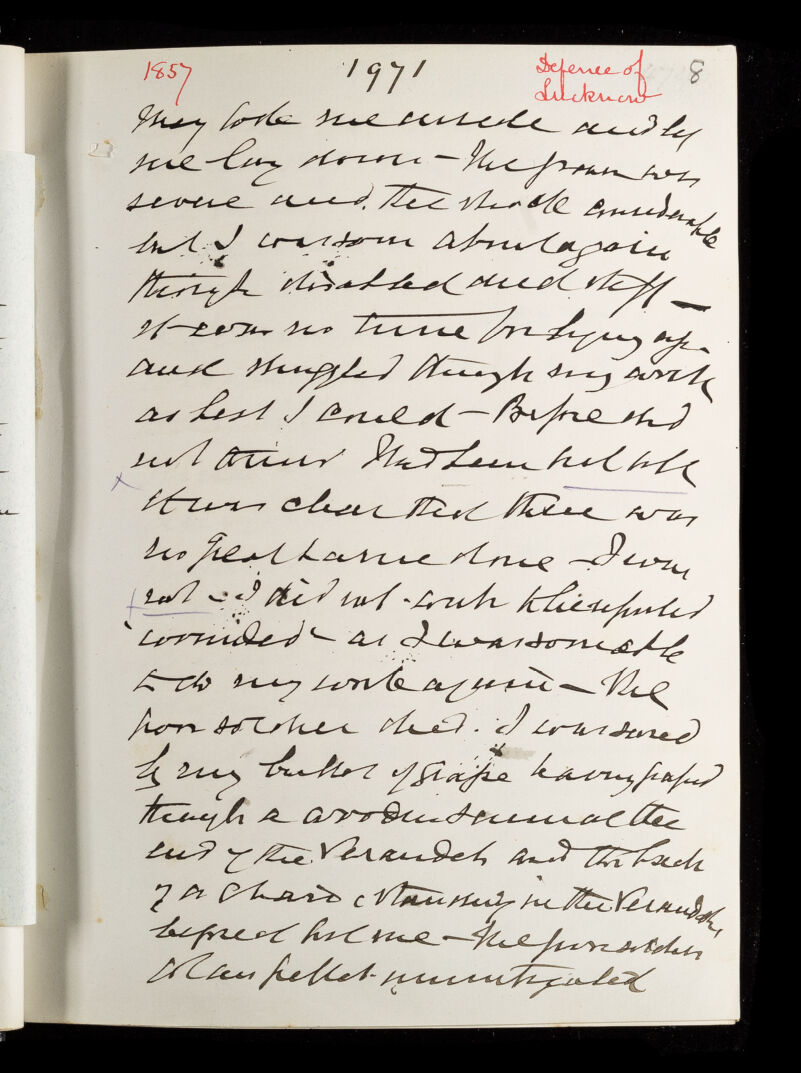 1857 1971 Defence of Lucknow 8
They took me inside and by
me lay down – The pain was
severe and the shock considerable
but I was soon about again
though disabled and stiff –
it was no time for lying up
and struggled through my work
as best I could – Before and
not
it was clear that there was
no great harm done – I was
not – I did not wish to be reported
wounded – as I was soon able
to do my work again – The
poor soldier died. I was saved
by my bullet of grape having passed
through a wooden screen at the
end of the Verandah and the back
of a chair standing in the Verandah
before it hit me – The poor soldier
pellet unmitigated